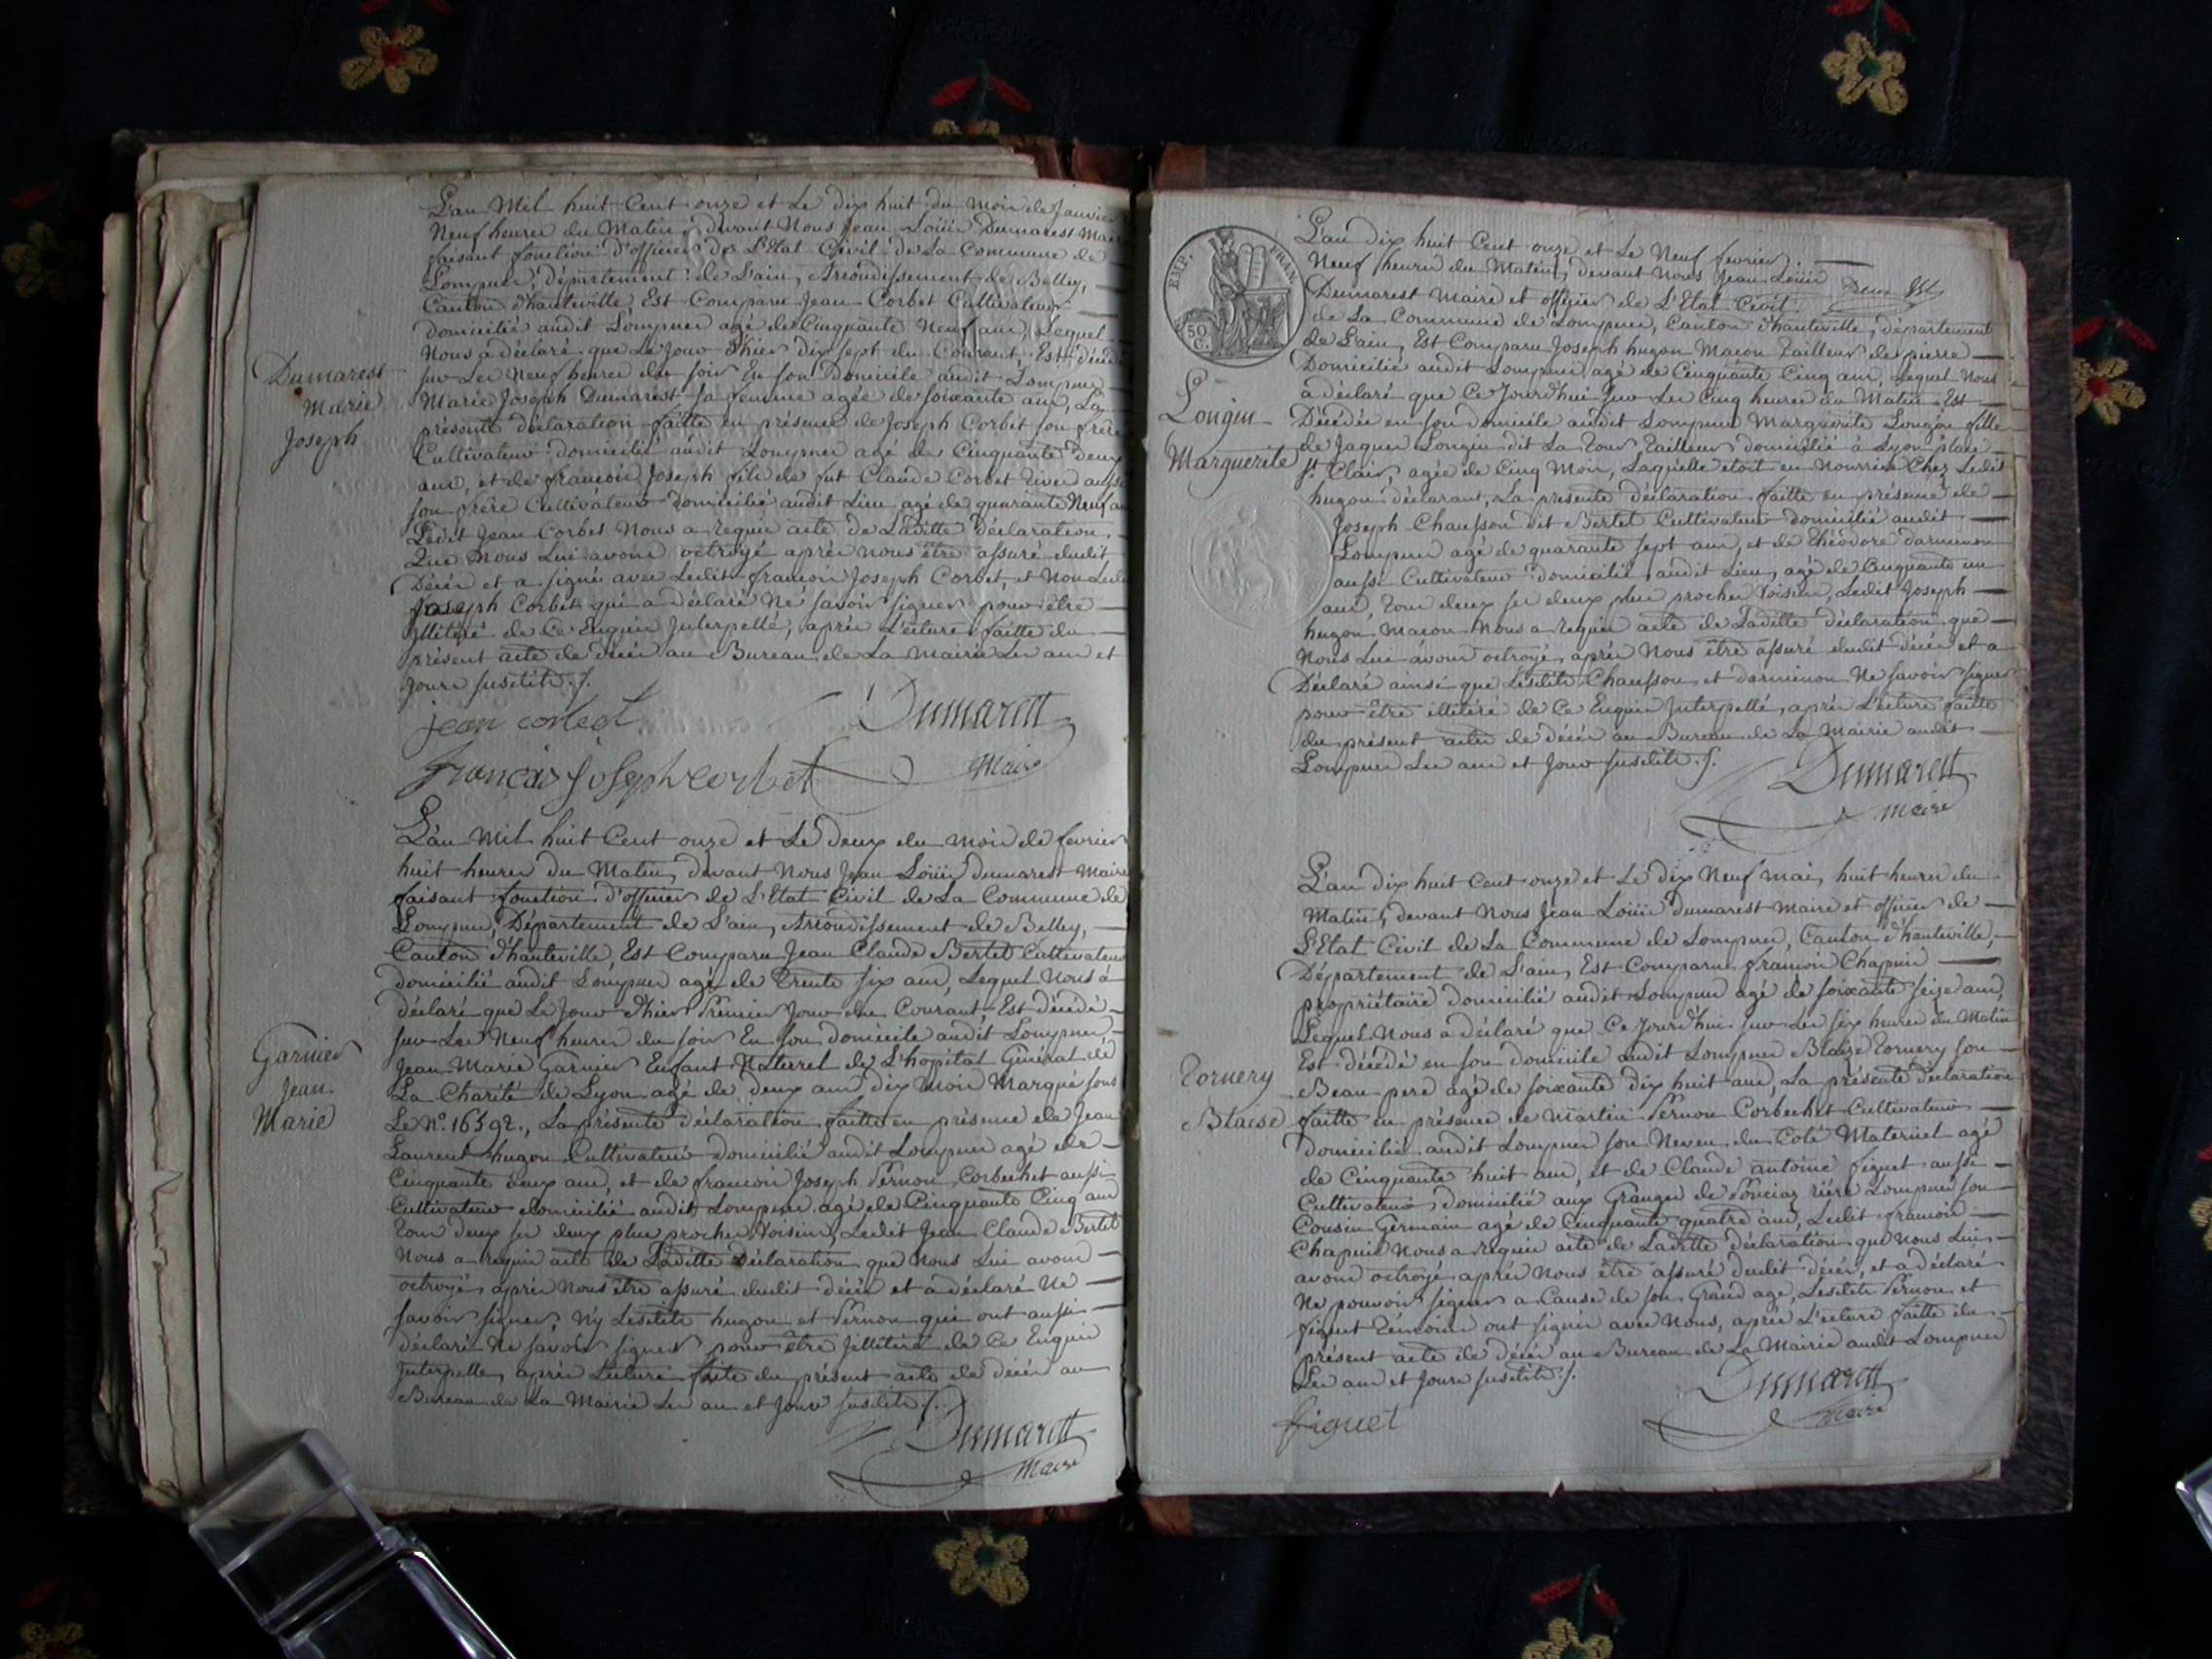 L'an Mil huit Cent onze et Le dix huit du mois de Janvier
Neuf heures du Matin, devant Nous Jean Loüis Dumarest Maire
faisant fonction d'officier de L'Etat Civil de La Commune de
Lompnes, département de L'ain, Arrondissement de Belley,
Canton d'hauteville, Est Comparu Jean Corbet Cultivateur
domicilié audit Lompnes agé de Cinquante Neuf ans, Lequel
Nous a déclaré que Le Jour d'hier dix sept du Courant, Est décédé
sur Les Neuf heures du soir En son Domicile audit Lompnes
Marie Joseph Dumarest sa femme agée de soixante ans, La
présente déclaration faitte en présence de Joseph Corbet son frère
Cultivateur domicilié audit Lompnes agé de Cinquante deux
ans, et de françois Joseph fils de fut Claude Corbet aussi
son frère Cultivateur domicilié audit Lieu agé de quarante Neuf ans
Ledit Jean Corbet Nous a requis acte de Laditte déclaration,
Que Nous Lui avons octroyé après nous être assuré dudit
Décès et a signé avec Ledit françois Joseph Corbet, et Non Ledit
Joseph Corbet qui a déclaré Ne savoir signer pour être
illitéré de Ce Enquis Interpellé, après L'ecture faitte du
présent acte de décès au Bureau de La Mairie Les an et
Jours susdits ./.
Dumarest
Marie
Joseph
jean corbet
Dumarest
françois joseph corbet
Maire
L'an Mil huit Cent onze et Le deux du mois de fevrier
huit heures du Matin, devant Nous Jean Loüis Dumarest Maire
faisant fonction d'officier de L'Etat Civil de La Commune de
Lompnes, Département de L'ain, Arrondissement de Belley,
Canton d'hauteville, Est Comparu Jean Claude Bertet Cultivateur
domicilié audit Lompnes agé de Trente six ans, Lequel Nous à
déclaré que Le Jour d'hier Premier Jour du Courant, Est décédé
sur Les Neuf heures du soir En son domicile audit Lompnes
Jean Marie Garnier Enfant Naterrel de L'hopital Général de
La Charité de Lyon agé de deux ans dix mois Marqué sous
Le N°. 16592., La présente déclaration faitte en présence de Jean
Laurent hugon Cultivateur domicilié audit Lompnes agé de
Cinquante deux ans, et de françois Joseph Pernon Corbechet aussi
Cultivateur domicilié audit Lompnes agé de Cinquante Cinq ans
Tous deux ses deux plus proches Voisins, Ledit Jean Claude Bertet
Nous a requis acte de Laditte déclaration que Nous Lui avons
octroyé, après Nous être assuré dudit décès et à déclaré Ne
savoir signer, N'y Lesdits hugon et Pernon qui ont aussi
déclaré Ne savoir signer pour être Jllitéré de Ce Enquis
Interpellé, après Lecture faite du présent acte de décès au
Bureau de La Mairie Les an et Jour susdits ./.
Garnier
Jean
Marie
Dumarest
Maire
EMP. FRAN.
50 C.
L'an dix huit Cent onze et Le Neuf fevrier
Neuf heures du Matin, devant Nous Jean Loüis
Dumarest Maire et officier de L'Etat Civil
de La Commune de Lompnes, Canton d'hauteville, département
de L'ain, Est Comparu Joseph hugon Macon Tailleur de pierre
Domicilié audit Lompnes agé de Cinquante Cinq ans, Lequel Nous
a déclaré que Ce Jourd'hui sur Les Cinq heures du Matin Est
Décédée en son domicile audit Lompnes Marguerite Longin fille
de Jaques Longin dit La Tour Tailleur domicilié à Lyon place
St. Clair, agée de Cinq Mois, Laquelle etoit en Nourrice Chez Ledit
hugon déclarant, La présente déclaration faitte en présence de
Joseph Chausson dit Bertet Cultivateur domicilié audit
Lompnes agé de quarante sept ans, et de théodore darmenon
aussi Cultivateur domicilié audit Lieu, agé de Cinquante un
ans, Tous deux ses deux plus proches Voisins, Ledit Joseph
hugon Macon Nous a requis acte de Laditte déclaration que
Nous Lui avons octroyé, après Nous être assuré dudit décès et a
Déclaré ainsi que Lesdits Chausson et darmenon Ne savoir signer
pour être illitéré de Ce Enquis Interpellé, après L'ecture faitte
du présent acte de décès au Bureau de La Mairie audit
Lompnes Les an et Jour susdits ./.
Longin
Marguerite
Dumarest
Maire
L'an dix huit Cent onze et Le dix Neuf mai, huit heures du
Matin, devant Nous Jean Loüis Dumarest Maire et officier de
L'Etat Civil de La Commune de Lompnes, Canton d'hauteville,
Département de L'ain, Est Comparu françois Chapuis
propriétaire domicilié audit Lompnes agé de soixante seize ans,
Lequel Nous a déclaré que Ce Jourd'hui sur Les six heures du Matin
Est décédé en son domicile audit Lompnes Blaize Tornery son
Beau pere agé de soixante dix huit ans, La présente déclaration
faitte en présence de Martin Pernon Corbechet Cultivateur
Domicilié audit Lompnes son Neveu du Coté Maternel agé
de Cinquante huit ans, et de Claude antoine figuet aussi
Cultivateur domicilié aux Granges de rière Lompnes son
Cousin Germain agé de Cinquante quatre ans, Ledit françois
Chapuis Nous a requis acte de Laditte déclaration que Nous Lui
avons octroyé après Nous être assuré dudit décès, et a déclaré
Ne pouvoir signer a Cause de son Grand age, Lesdits Pernon et
figuet Témoins ont signés avec Nous, après L'ecture faitte du
présent acte de décès au Bureau de La Mairie audit Lompnes
Les an et Jours susdits ./.
Tornery
Blaise
Dumarest
figuet
Maire